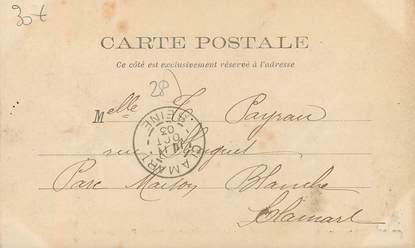 30t
CARTE POSTALE
Ce côté est exclusivement réservé à l'adresse
28
Melle Payrau
rue
CLAMART
OCT
03
SEINE
Parc Maison Blanche
Clamart